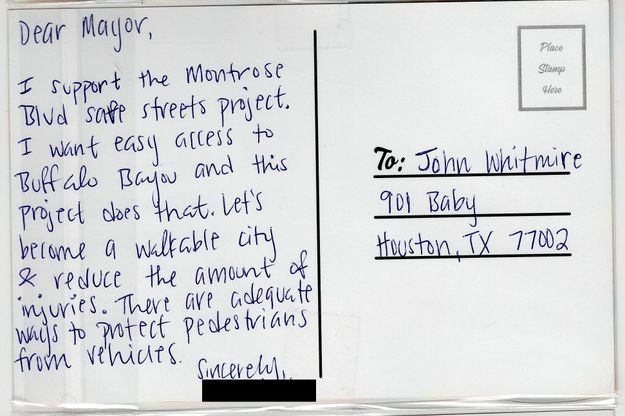 Dear Mayor,
I support the Montrose
Blvd safe streets project.
I want easy access to
Buffalo Bayou and this
project does that. Let's
become a walkable city
& reduce the amount of
injuries. There are adequate
ways to protect pedestrians
from vehicles.
Sincerely,
Place
Stamp
Here
To: John Whitmire
901 Baby
Houston, TX 77002